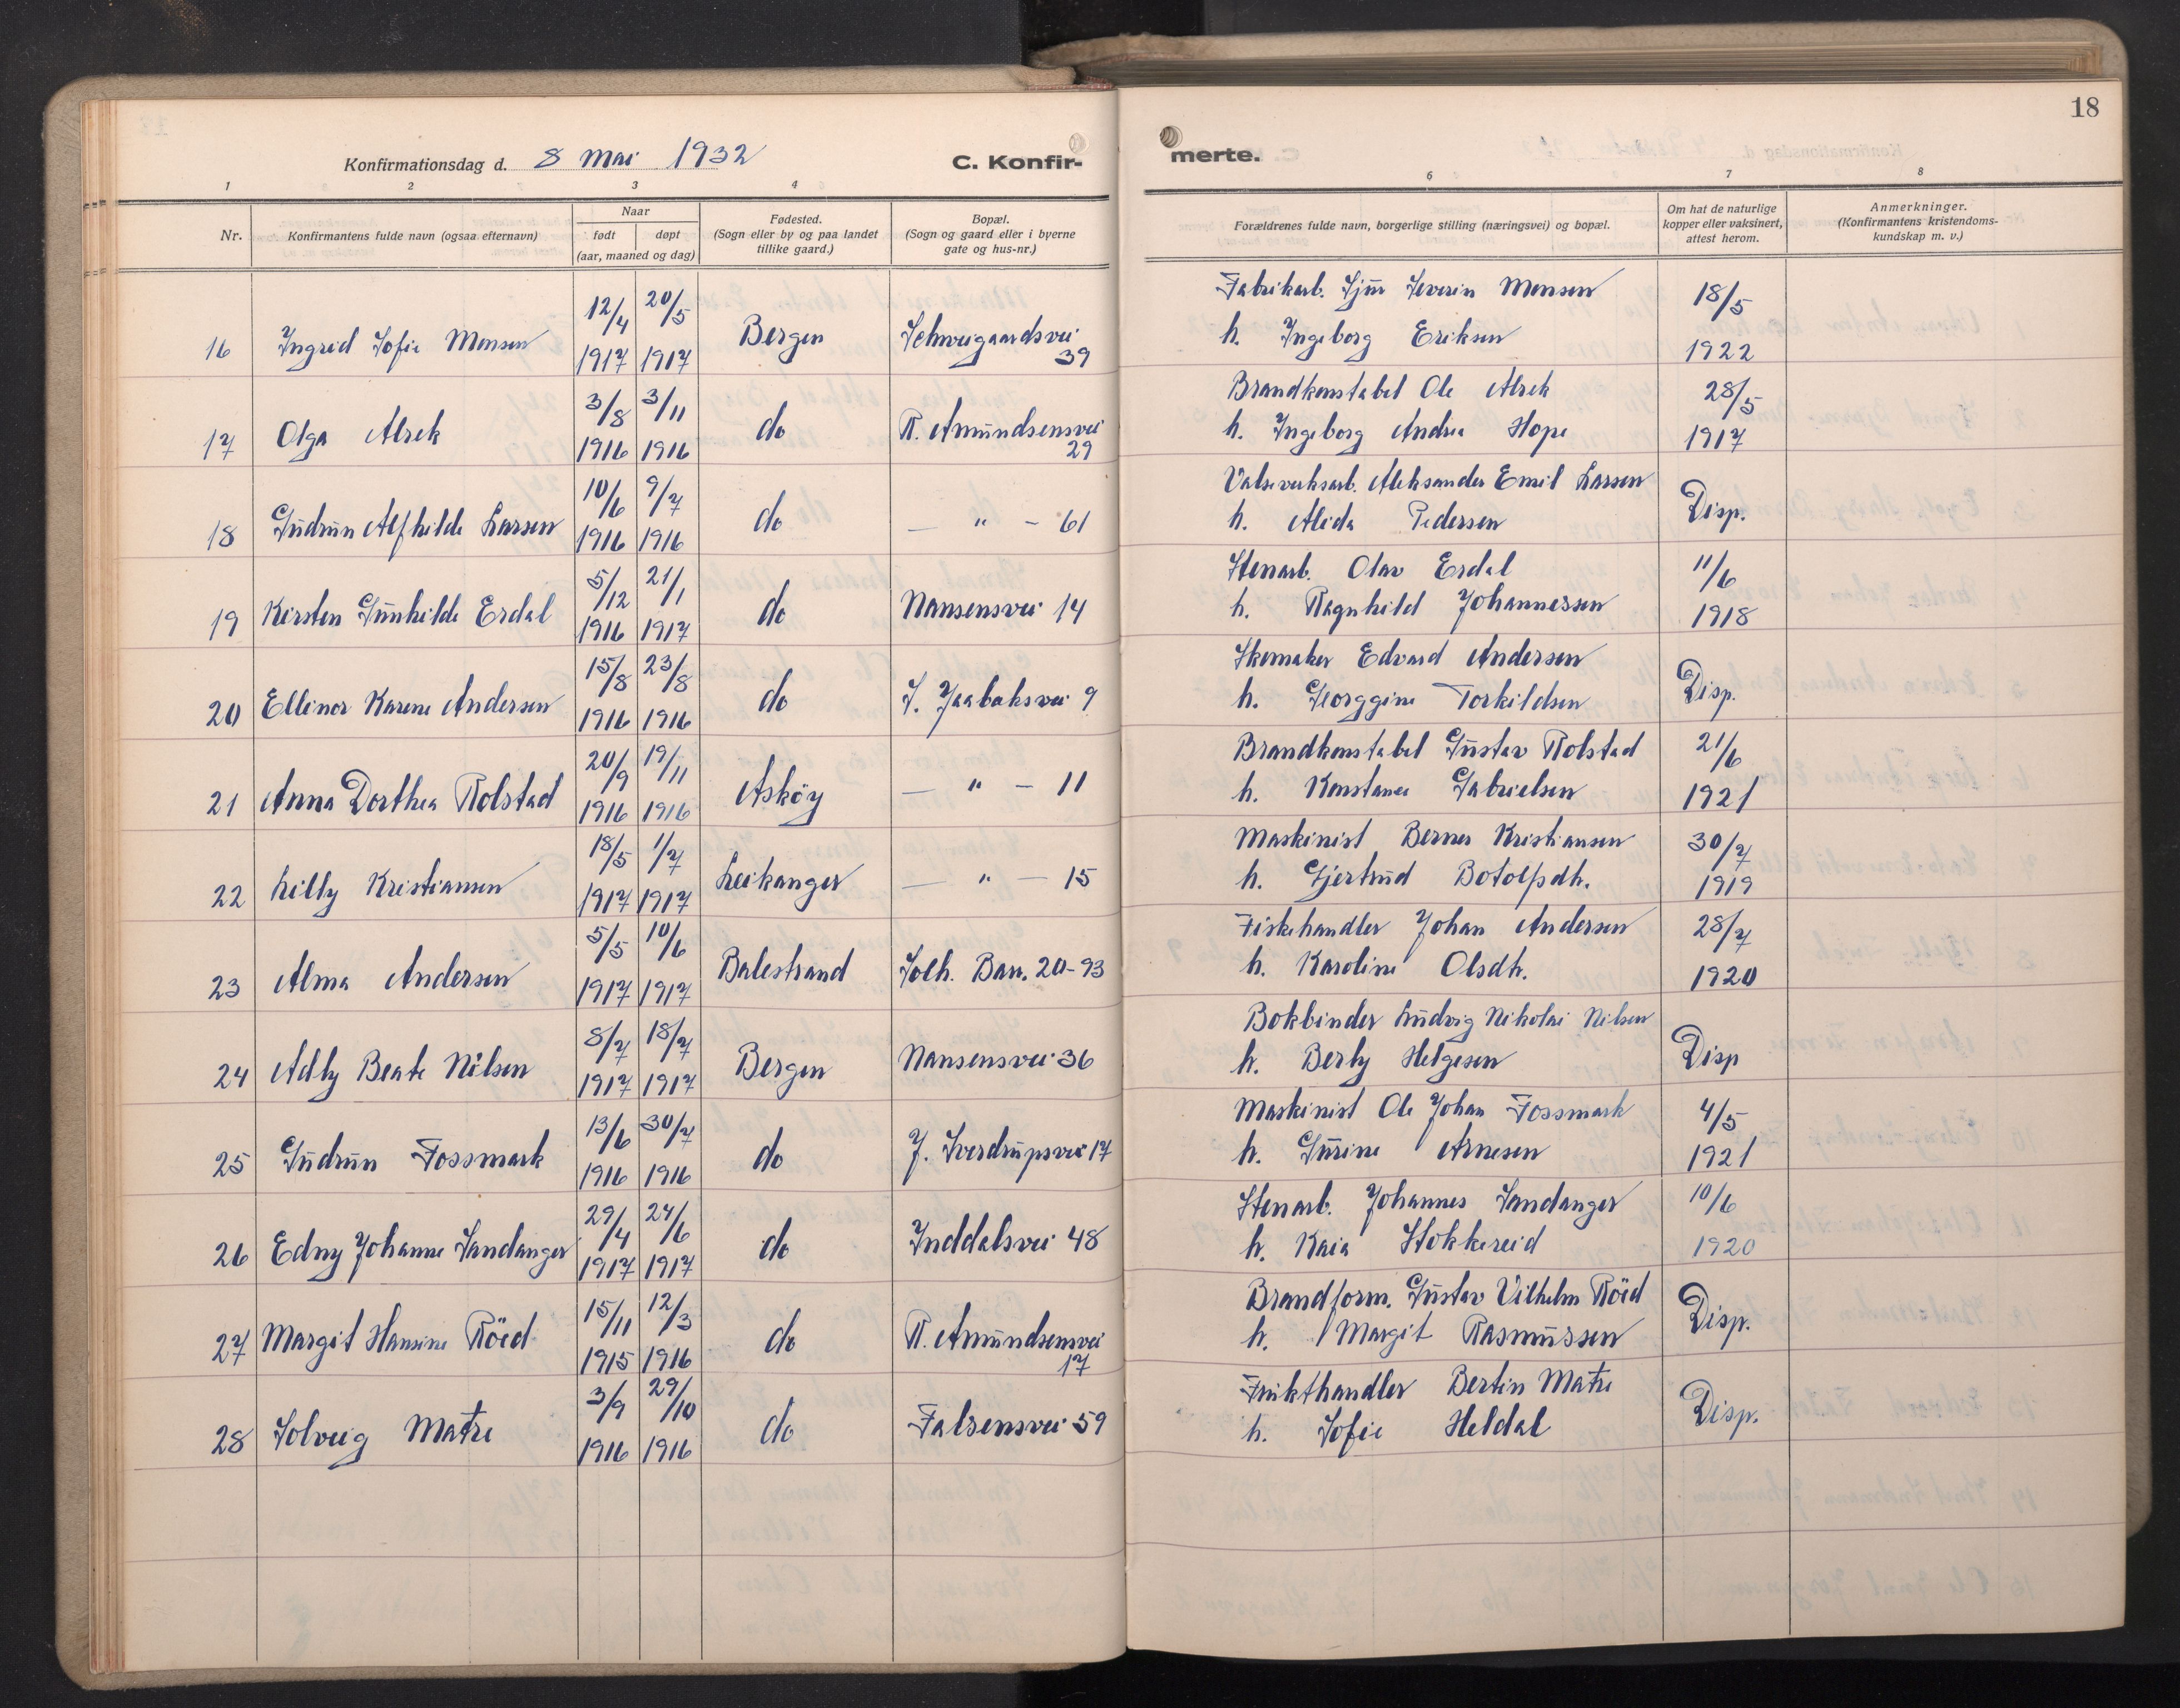 18
Konfirmationsdag d. 8 Mai 1932
C. Konfir-
merte.
1 2 3 4 5 6 7 8
Nr.
Konfirmantens fulde navn (ogsaa efternavn)
Naar
født døpt
(aar, maaned og dag)
Fødested.
(Sogn eller by og paa landet
tillike gaard.)
Bopæl.
(Sogn og gaard eller i byerne
gate og hus-nr.)
Forældrenes fulde navn, borgerlige stilling (næringsvei) og bopæl.
Om hat de naturlige
kopper eller vaksinert,
attest herom.
Anmerkninger.
(Konfirmantens kristendoms-
kundskap m. v.)
12/4 20/5 Fabrikarb. Sjur Severin Monsen 18/5
16 Ingrid Sofie Monsen 1917 1917 Bergen Schweigaardsvei 39 h. Ingeborg Eriksen 1922
3/8 3/11 Brandkonstabel Ole Alrek 28/5
17 Olga Alrek 1916 1916 do R. Amundsensvei 29 h. Ingeborg Andrea Hope 1917
10/6 9/7 Valseverksarb. Aleksander Emil Larsen
18 Gudrun Alfhilde Larsen 1916 1916 do — " — 61 h. Alida Pedersen Disp.
5/12 21/1 Stenarb. Olav Erdal 11/6
19 Kirsten Gunhilde Erdal 1916 1917 do Nansensvei 14 h. Ragnhild Johannessen 1918
15/8 23/8 Skomaker Edvard Andersen
20 Ellinor Karene Andersen 1916 1916 do S. Jaabæksvei 9 h. Georggine Torkildsen Disp.
20/9 19/11 Brandkonstabel Gustav Rolstad 21/6
21 Anna Dorthea Rolstad 1916 1916 Askøy — " — 11 h. Konstanse Gabrielsen 1921
18/5 1/7 Maskinist Berner Kristiansen 30/7
22 Lilly Kristiansen 1917 1917 Leikanger — " — 15 h. Gjertrud Botolpdh. 1919
5/5 10/6 Fiskehandler Johan Andersen 28/7
23 Alma Andersen 1917 1917 Balestrand Solh. Bar. 20-93 h. Karoline Olsdh. 1920
8/7 18/7 Bokbinder Ludvig Nikolai Nilsen
24 Adly Beate Nilsen 1917 1917 Bergen Nansensvei 36 h. Berly Helgesen Disp
13/6 30/7 Maskinist Ole Johan Fossmark 4/5
25 Gudrun Fossmark 1916 1916 do J. Sverdrupsvei 17 h. Gurine Arnesen 1921
29/4 24/6 Stenarb. Johannes Sandanger 10/6
26 Edny Johanne Sandanger 1917 1917 do Inddalsvei 48 h. Kaia Stokkereid 1920
15/11 12/3 Brandform. Gustav Vilhelm Röed
27 Margit Hansine Röed 1915 1916 do R. Amundsensvei 17 h. Margit Rasmussen Disp.
3/9 29/10 Frukthandler Bertin Matre
28 Solveig Matre 1916 1916 do Falsensvei 59 h. Sofie Heldal Disp.